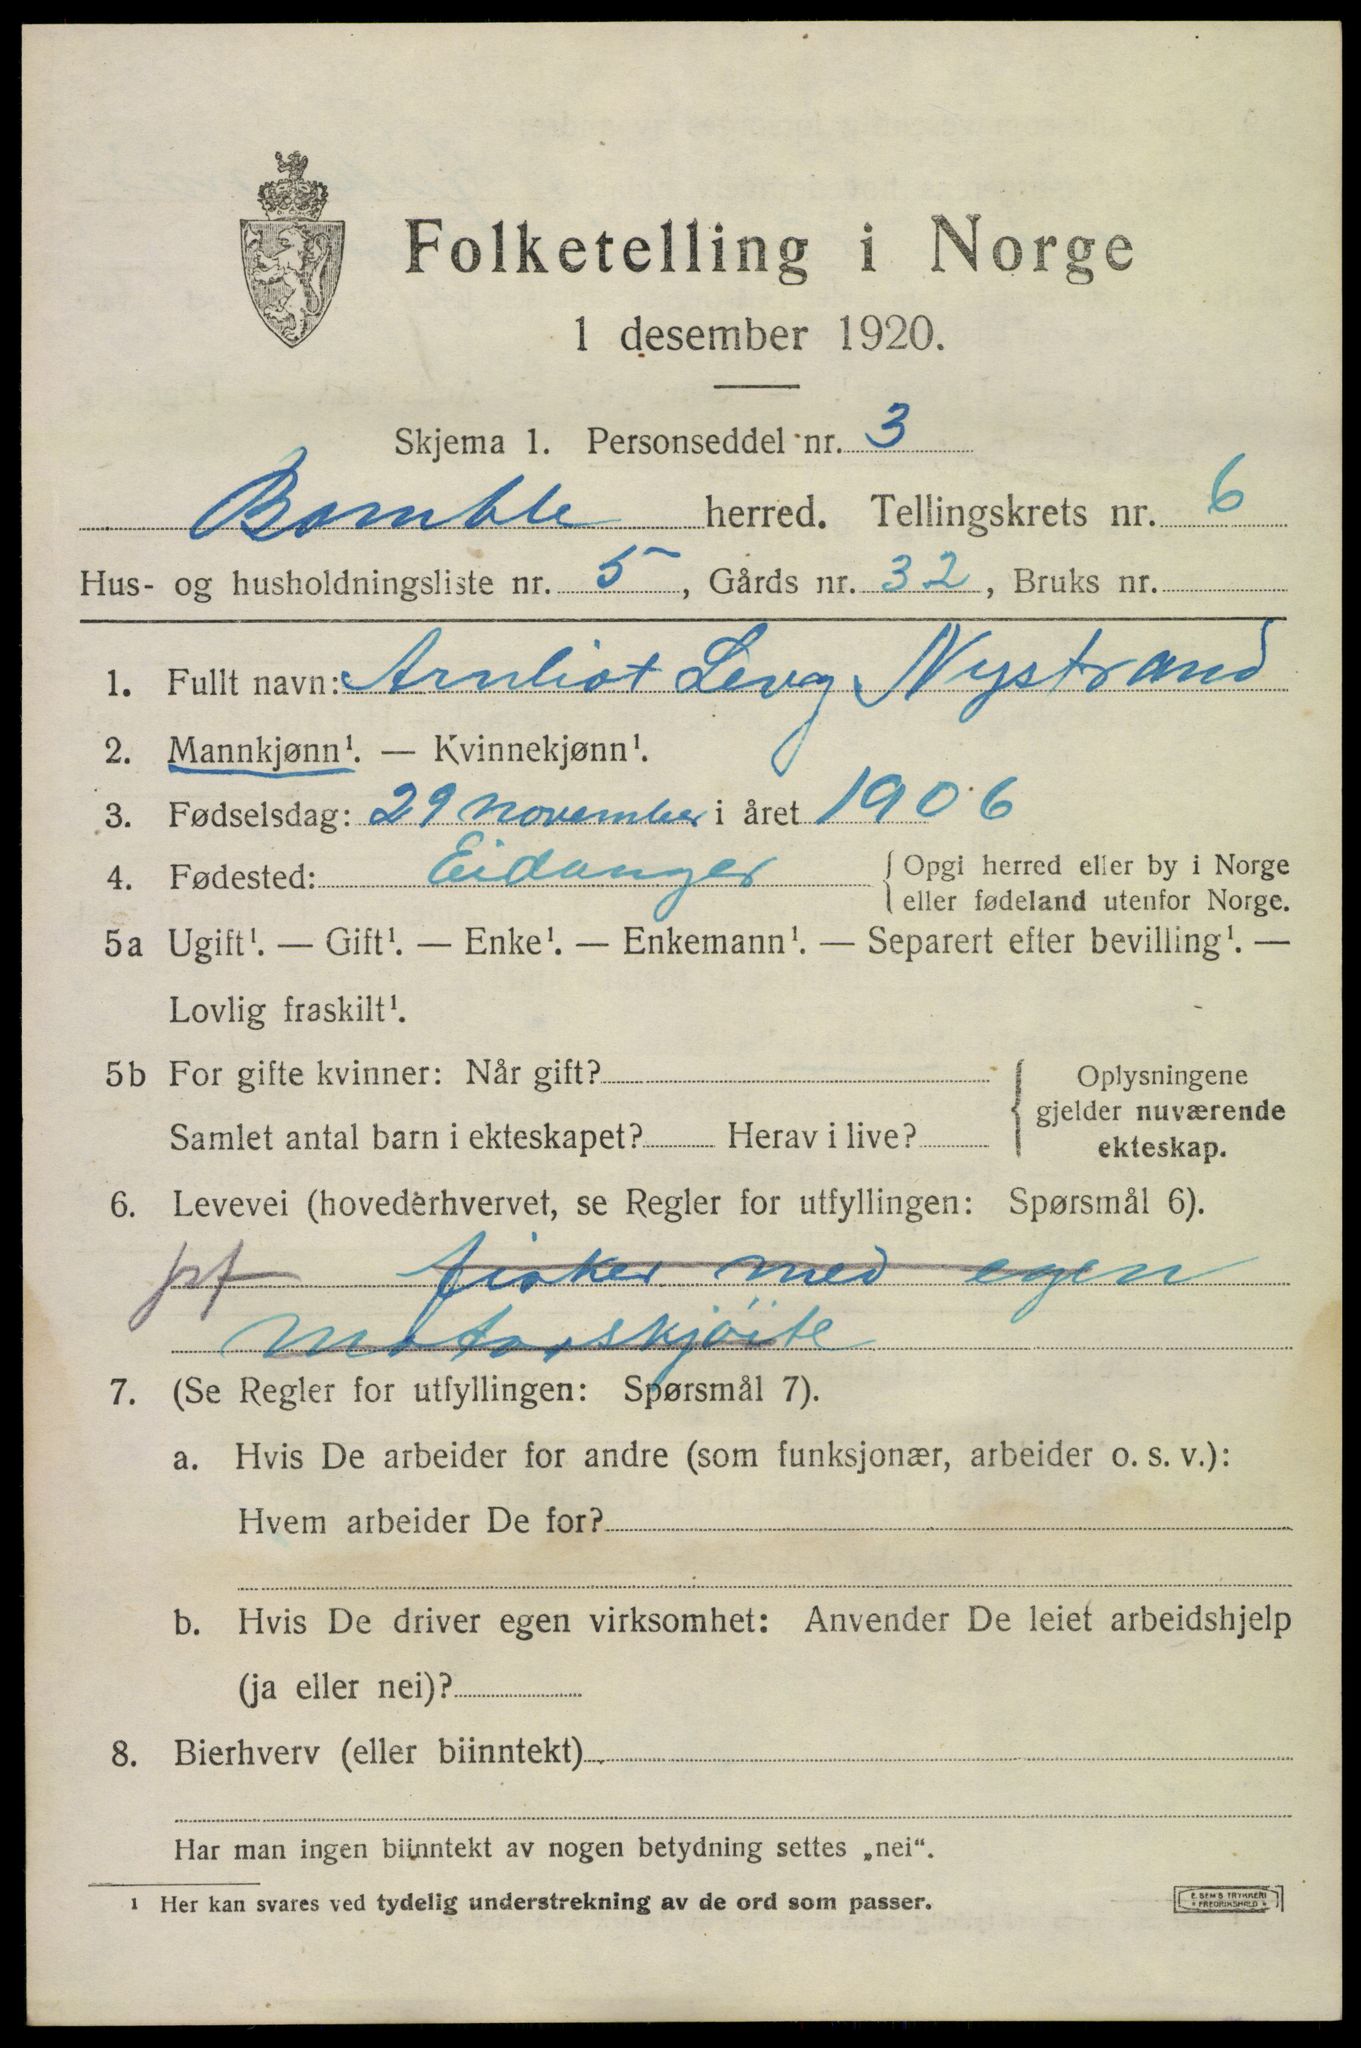 Folketelling i Norge
1 desember 1920.
Skjema 1. Personseddel nr. 3
Bamble herred. Tellingskrets nr. 6
Hus- og husholdningsliste nr. 5, Gårds nr. 32, Bruks nr.
1. Fullt navn: Arnliot Levy Nystrand
2. Mannkjønn¹. — Kvinnekjønn¹.
3. Fødselsdag: 29 november i året 1906
4. Fødested: Eidanger { Opgi herred eller by i Norge
eller fødeland utenfor Norge.
5a Ugift¹. — Gift¹. — Enke¹. — Enkemann¹. — Separert efter bevilling¹. —
Lovlig fraskilt¹.
5b For gifte kvinner: Når gift?
Samlet antal barn i ekteskapet? Herav i live?
{ Oplysningene
gjelder nuværende
ekteskap.
6. Levevei (hovederhvervet, se Regler for utfyllingen: Spørsmål 6).
fisker med egen
motorskjöite
7. (Se Regler for utfyllingen: Spørsmål 7).
a. Hvis De arbeider for andre (som funksjonær, arbeider o. s. v.):
Hvem arbeider De for?
b. Hvis De driver egen virksomhet: Anvender De leiet arbeidshjelp
(ja eller nei)?
8. Bierhverv (eller biinntekt)
Har man ingen biinntekt av nogen betydning settes „nei“.
1 Her kan svares ved tydelig understrekning av de ord som passer.
E. SEM'S TRYKKERI
FREDRIKSHALD